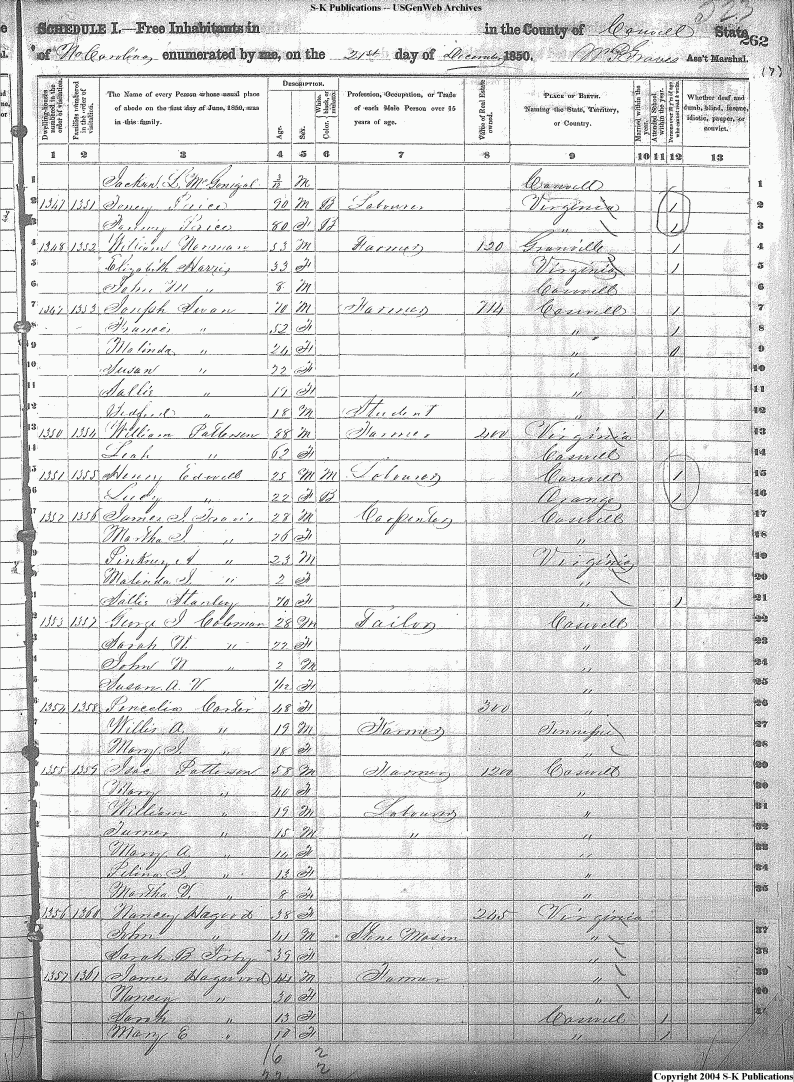 S-K Publications -- USGenWeb Archives
523
SCHEDULE I.— Free Inhabitants in in the County of Caswell State
262
of No Carolina enumerated by me, on the 21st day of December 1850. Wm Graves Ass't Marshal.
(7)
Dwelling-houses numbered in the order of visitation.
Families numbered in the order of visitation.
The Name of every Person whose usual place of abode on the first day of June, 1850, was in this family.
DESCRIPTION.
Age.
Sex.
Color.
Profession, Occupation, or Trade of each Male Person over 15 years of age.
Value of Real Estate owned.
PLACE OF BIRTH.
Naming the State, Territory, or Country.
Married within the year.
Attended School within the year.
Whether deaf and dumb, blind, insane, idiotic, pauper, or convict.
1 2 3 4 5 6 7 8 9 10 11 12 13
1 Jackson L. McGonigal 3/12 M Caswell 1
2 1347 1351 Price 90 M B Labourer Virginia 1 2
3 Price 80 F B " 1 3
4 1348 1352 William Norman 53 M Farmer 120 Granville 1 4
5 Elizabeth Harris 33 F Virginia 1 5
6 John M " 8 M Caswell 6
7 1349 1353 Joseph Swan 70 M Farmer 714 Caswell 1 7
8 Frances " 52 F " 1 8
9 Malinda " 24 F " 0 9
10 Susan " 22 F " 10
11 Sallie " 19 F " 11
12 " 18 M Student " 1 12
13 1350 1354 William Patterson 88 M Farmer 400 Virginia 13
14 Leah " 62 F Caswell 14
15 1351 1355 Henry Edwell 25 M M Labourer Caswell 1 15
16 Lucy " 22 F B Orange 1 16
17 1352 1356 James I. Travis 28 M Carpenter Caswell 17
18 Martha I. " 26 F " 18
19 Pinkney A " 23 M Virginia 19
20 Malinda I. " 2 F " 20
21 Sallie Stanley 70 F " 1 21
22 1353 1357 George I. Coleman 28 M Tailor Caswell 22
23 Sarah N. " 22 F " 23
24 John N " 2 M " 24
25 Susan A. V /12 F " 25
26 1354 1358 Carter 48 F 300 " 26
27 Willis A. " 19 M Farmer Tennessee 27
28 Mary I. " 18 F " 28
29 1355 1359 Isac Patterson 58 M Farmer 1200 Caswell 29
30 Mary " 40 F " 30
31 William " 19 M Labourer " 31
32 Turner " 15 M " " 32
33 Mary A. " 14 F " 33
I. " 13 F "
35 Martha V. " 8 F " 35
1356 1360 Nancy Hagood 38 F 245 Virginia
37 John " 41 M Stone Mason " 37
38 Sarah B 39 F " 38
39 1357 1361 James Hagwood 44 M Farmer " 39
Nancy " 30 F "
Sarah " 13 F Caswell 1
Mary E " 10 F " 1
16 2
22 2
Copyright 2004 S-K Publications